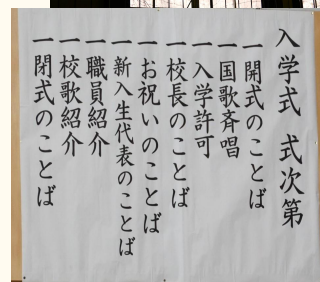 入学式 式次第
一開式のことば
一国歌斉唱
一入学許可
一校長のことば
一お祝いのことば
一新入生代表のことば
一職員紹介
一校歌紹介
一閉式のことば